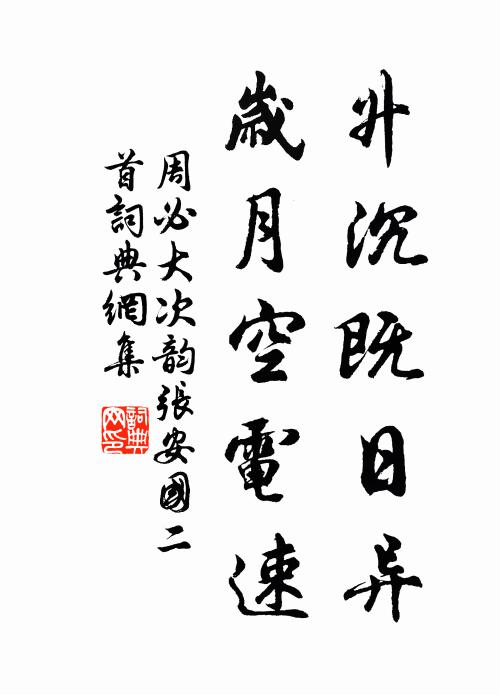 升沉既日异
歲月空電速
周必大次韵張安國二
首詞典網集
詞典
网印